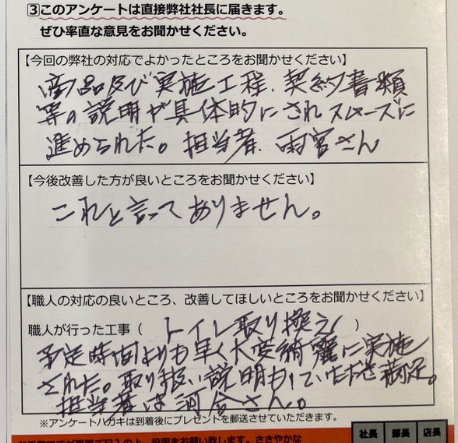 ③このアンケートは直接弊社社長に届きます。
ぜひ率直な意見をお聞かせください。
【今回の弊社の対応でよかったところをお聞かせください】
商品及び実施工程、契約書類
等の説明が具体的にされスムーズに
進められた。担当者、雨宮さん
【今後改善した方が良いところをお聞かせください】
これと言ってありません。
【職人の対応の良いところ、改善してほしいところをお聞かせください】
職人が行った工事（トイレ取り換え）
予定時間よりも早く大変綺麗に実施
された。取り扱い説明もしていただき満足。
担当者は河合さん。
※アンケートハガキは到着後にプレゼントを郵送させていただきます。
社長 部長 店長